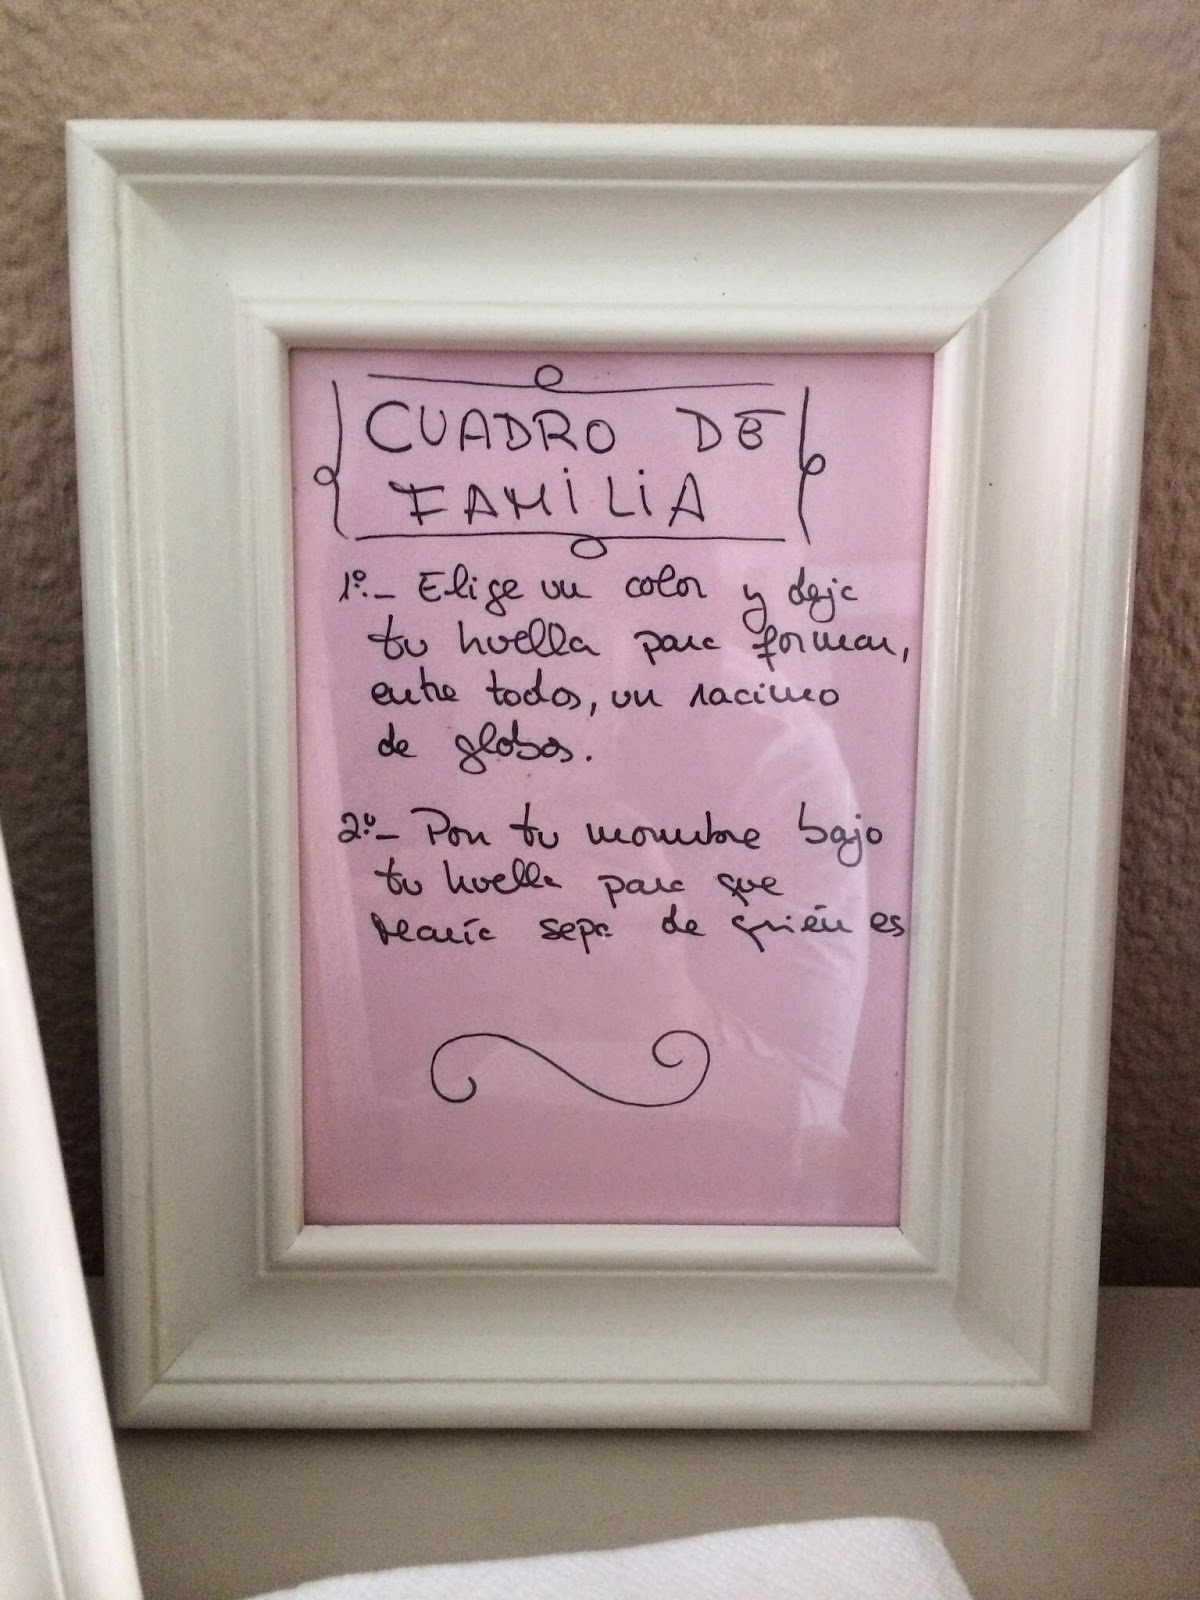 CUADRO DE
FAMILIA
1º.- Elige un color y deja
tu huella para formar,
entre todos, un racimo
de globos.
2º- Pon tu nombre bajo
tu huella para que
María sepa de quién es